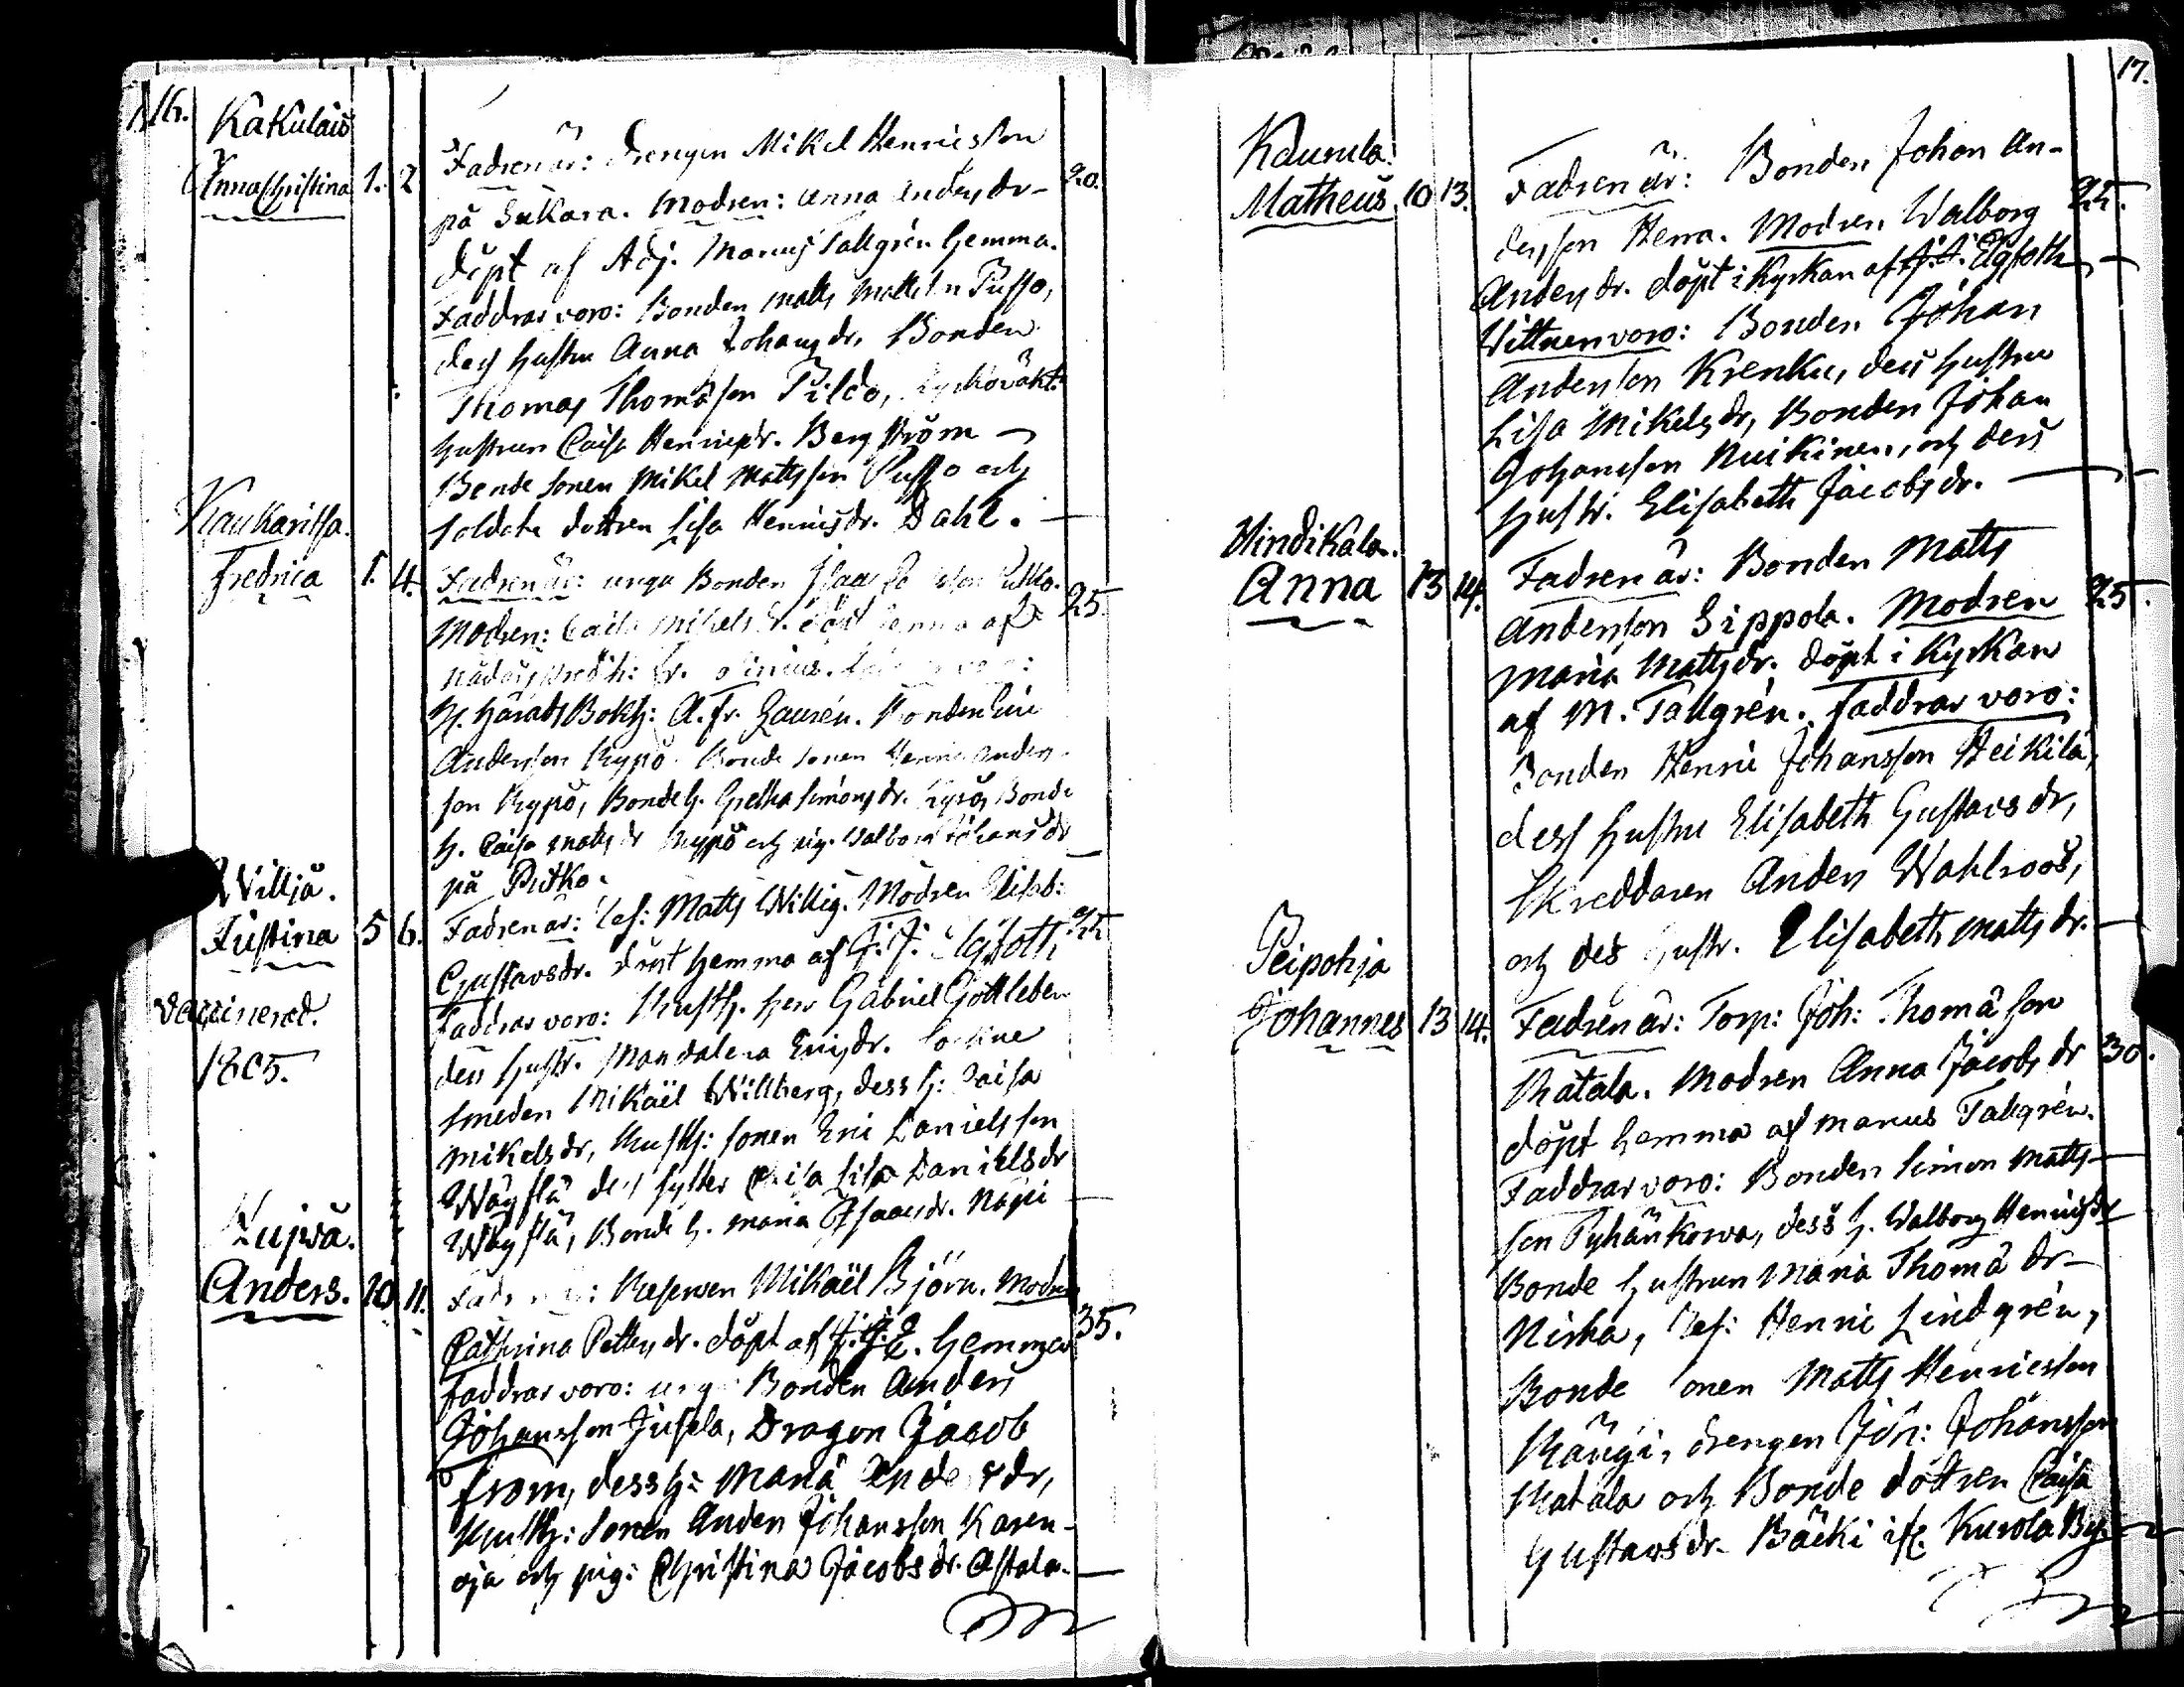 16.
Kakulais
Anna Christina 1. 2 Fadren är: drengen Mikel Henricsson 20.
på Sukara. Modren: Anna Anders dr
döpt af Adj. Tallgrén hemma.
Faddrar voro: Bonden Matts Mattsson Pusso,
dess hustru Anna Johans dr, Bonden
Thomas Thomasson Pildo,
hustrun Caisa Henrics dr. Bergström
Bonde sonen Mikel Mattsson Pusso och
soldate dottren Lisa Henrics dr. Dahl.
Kaukaritsa.
Fredrica 1. 4. Fadren är: unga Bonden Isaac 25.
Modren: Caisa Mikels dr. döpt hemma af
H. Härads Bokh: A. Fr. Laurén. Bonden Eric
Andersson Rypö. Bonde sonen Henric Anders-
son Rypö, Bonde h. Gretha Simons dr. Bonde
h. Caisa Matts dr Rypö och pig. Walborg Johans dr
på Putko.
Willjä.
Justina 5 6. Fadren är: Matts Willig. Modren Elisab:
Gustavs dr. döpt hemma af J. J. Elgfoth
vaccinerad.
1805.
Faddrar voro: Rusth. herr Gabriel Gottleben
dess hustr. Mandalena Erics dr.
smeden Mikaël Willberg, dess h: Caisa
Mikels dr, Rusth: sonen Eric Danielsson
dess syster Lisa Daniels dr
Bonde h. Maria Isaacs dr. Näpi
Kujwa.
Anders. 10 11. Reserven Mikaël Björn. Modren 35.
Cathrina Petters dr. döpt af J. J. E. hemma
Faddrar voro: unga Bonden Anders
Johansson Jusela, Dragon Jacob
From, dess h: Maria Anders dr,
Rusth: sonen Anders Johansson Karen-
oja och pig: Christina Jacobs dr. Astala.
17.
Kaurula.
Matheus. 10 13. Fadren är: Bonden Johan An-
dersson Herra. Modren Walborg 22.
Anders dr. döpt i Kyrkan af J. J. Elgfoth
Wittnen voro: Bonden Johan
Andersson Krenku, dess hustru
Lisa Mikels dr, Bonden Johan
Johansson Nuikinen, och dess
hustr. Elisabeth Jacobs dr.
Hindikala.
Anna 13 14. Fadren är: Bonden Matts
Andersson Sippola. Modren 25.
Maria Matts dr. döpt i Kyrkan
af M. Tallgrén. Faddrar voro:
Bonden Henric Johansson Heikilä,
dess hustru Elisabeth Gustavs dr,
Skreddaren Anders Wahlroos,
och des hustr. Elisabeth Matts dr.
Peipohja
Johannes 13 14. Fadren är: Torp: Joh: Thomasson
Ratala. Modren Anna Jacobs dr 30.
döpt hemma af Marcus Tallgrén.
Faddrar voro: Bonden Simon Matts-
son Pyhänkorva, dess h. Walborg Henrics dr
Bonde hustrun Maria Thomä dr
Niska, Res: Henric Lindgrén,
Bonde sonen Matts Henricsson
Rängi, drengen Joh: Johansson
Ratala och Bonde dottren Caisa
Gustavs dr. Bäcki if. Kurola By.